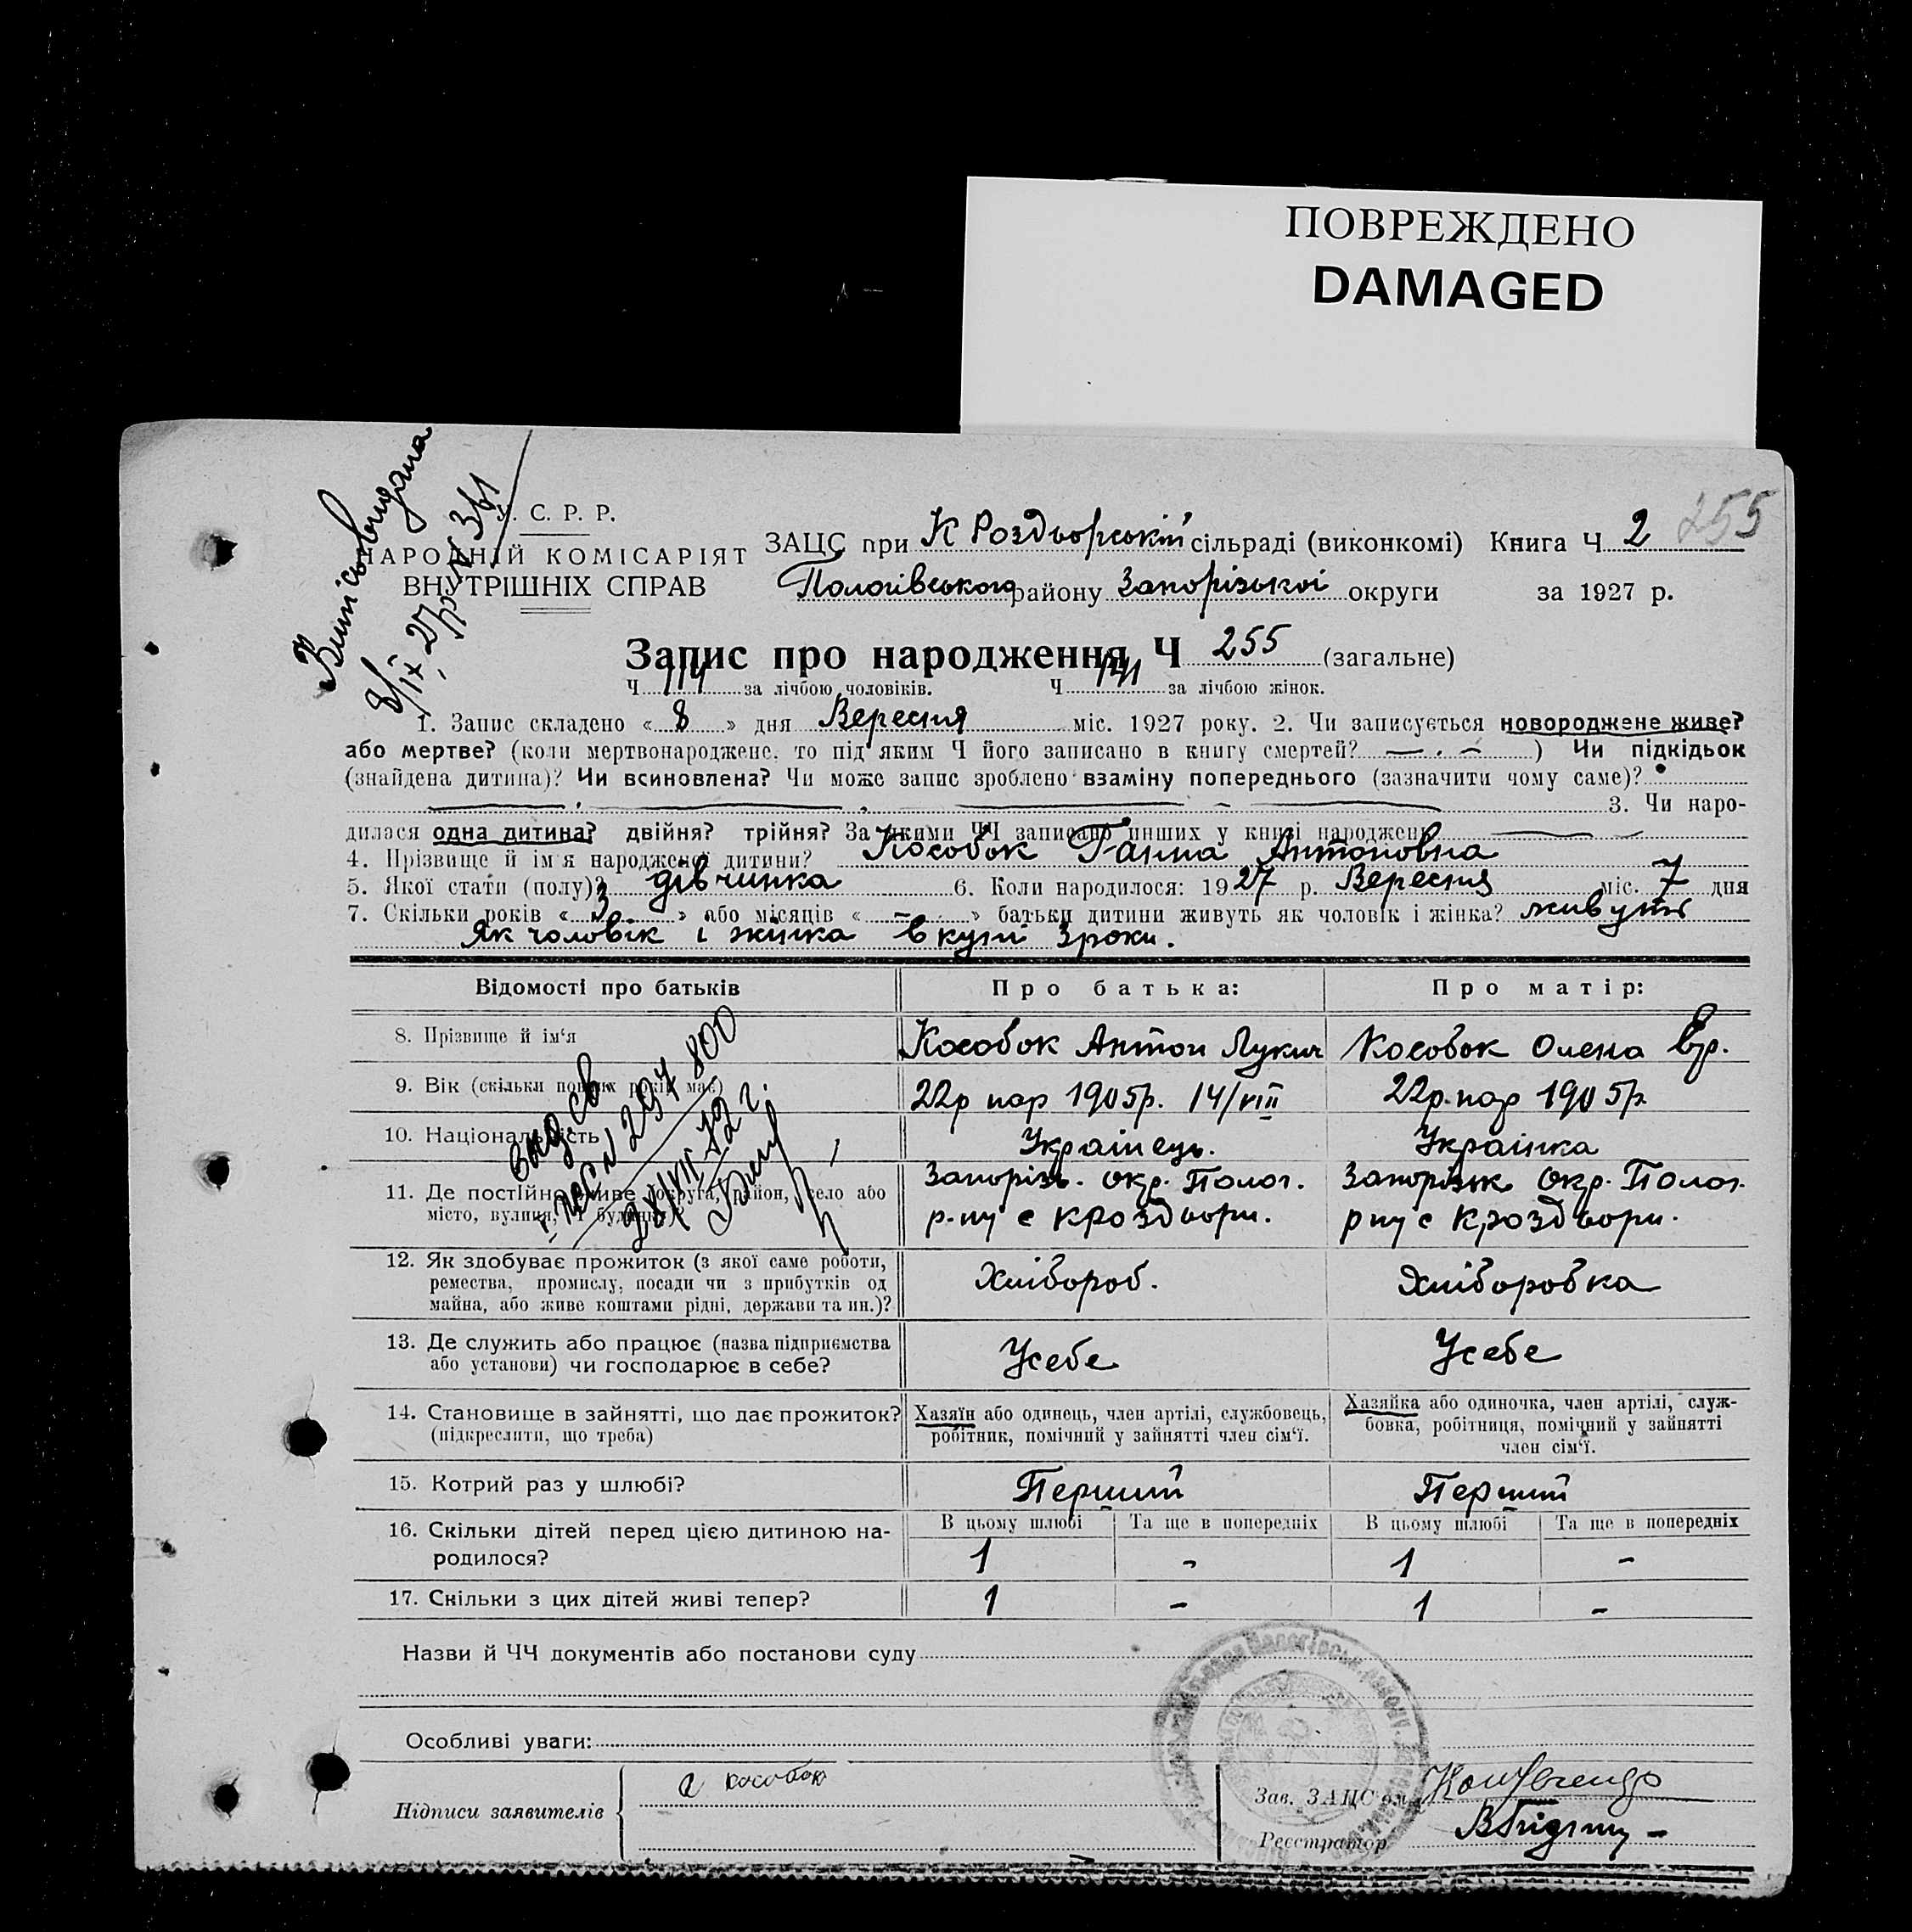 ПОВРЕЖДЕНО
DAMAGED
255
Виписъ видана
8/IX 27р N 361
У. С. Р. Р.
НАРОДНІЙ КОМІСАРІЯТ
ВНУТРІШНІХ СПРАВ
ЗАЦС при К Роздорській сільраді (виконкомі) Книга Ч 2
Пологівського району Запорізької округи за 1927 р.
Запис про народження Ч 255 (загальне)
Ч 114 за лічбою чоловіків. Ч 141 за лічбою жінок.
1. Запис складено « 8 » дня Вересня міс. 1927 року. 2. Чи записується новороджене живе?
або мертве? (коли мертвонароджене, то під яким Ч його записано в книгу смертей? — . — ) Чи підкідьок
(знайдена дитина)? Чи всиновлена? Чи може запис зроблено взаміну попереднього (зазначити чому саме)?
3. Чи наро-
дилася одна дитина? двійня? трійня? За якими ЧЧ записано инших у книзі народжень —
4. Прізвище й ім'я народженої дитини? Кособок Ганна Антоновна
5. Якої стати (полу)? дівчинка 6. Коли народилося: 1927 р. Вересня міс. 7 дня
7. Скільки років « 3 » або місяців « - » батьки дитини живуть як чоловік і жінка? живуть
як чоловік і жінка вкупі 3 роки.
Відомості про батьків Про батька: Про матір:
8. Прізвище й ім'я Кособок Антон Лукич Кособок Олена
9. Вік (скільки повних років має) 22р нар 1905р. 14/VIII 22р. нар 1905р.
10. Національність Українець. Українка
11. Де постійно живе (округа, район, село або Запорізь. окр. Полог. Запоріж окр. Полог.
місто, вулиця, Ч будинку? р-ну с Кроздори. рну с Кроздори.
12. Як здобуває прожиток (з якої саме роботи,
ремества, промислу, посади чи з прибутків од Хлібороб. Хліборобка
майна, або живе коштами рідні, держави та ин.)?
13. Де служить або працює (назва підприємства Усебе Усебе
або установи) чи господарює в себе?
14. Становище в зайнятті, що дає прожиток? Хазяїн або одинець, член артілі, службовець, Хазяйка або одиночка, член артілі, служ-
(підкреслити, що треба) робітник, помічний у зайнятті член сім'ї. бовка, робітниця, помічний у зайнятті
член сім'ї.
15. Котрий раз у шлюбі? Перший Перший
16. Скільки дітей перед цією дитиною на- В цьому шлюбі Та ще в попередніх В цьому шлюбі Та ще в попередніх
родилося? 1 - 1 -
17. Скільки з цих дітей живі тепер? 1 - 1 -
Назви й ЧЧ документів або постанови суду
Особливі уваги:
Підписи заявителів а кособок
Зав. ЗАЦС'ом
Реєстратор